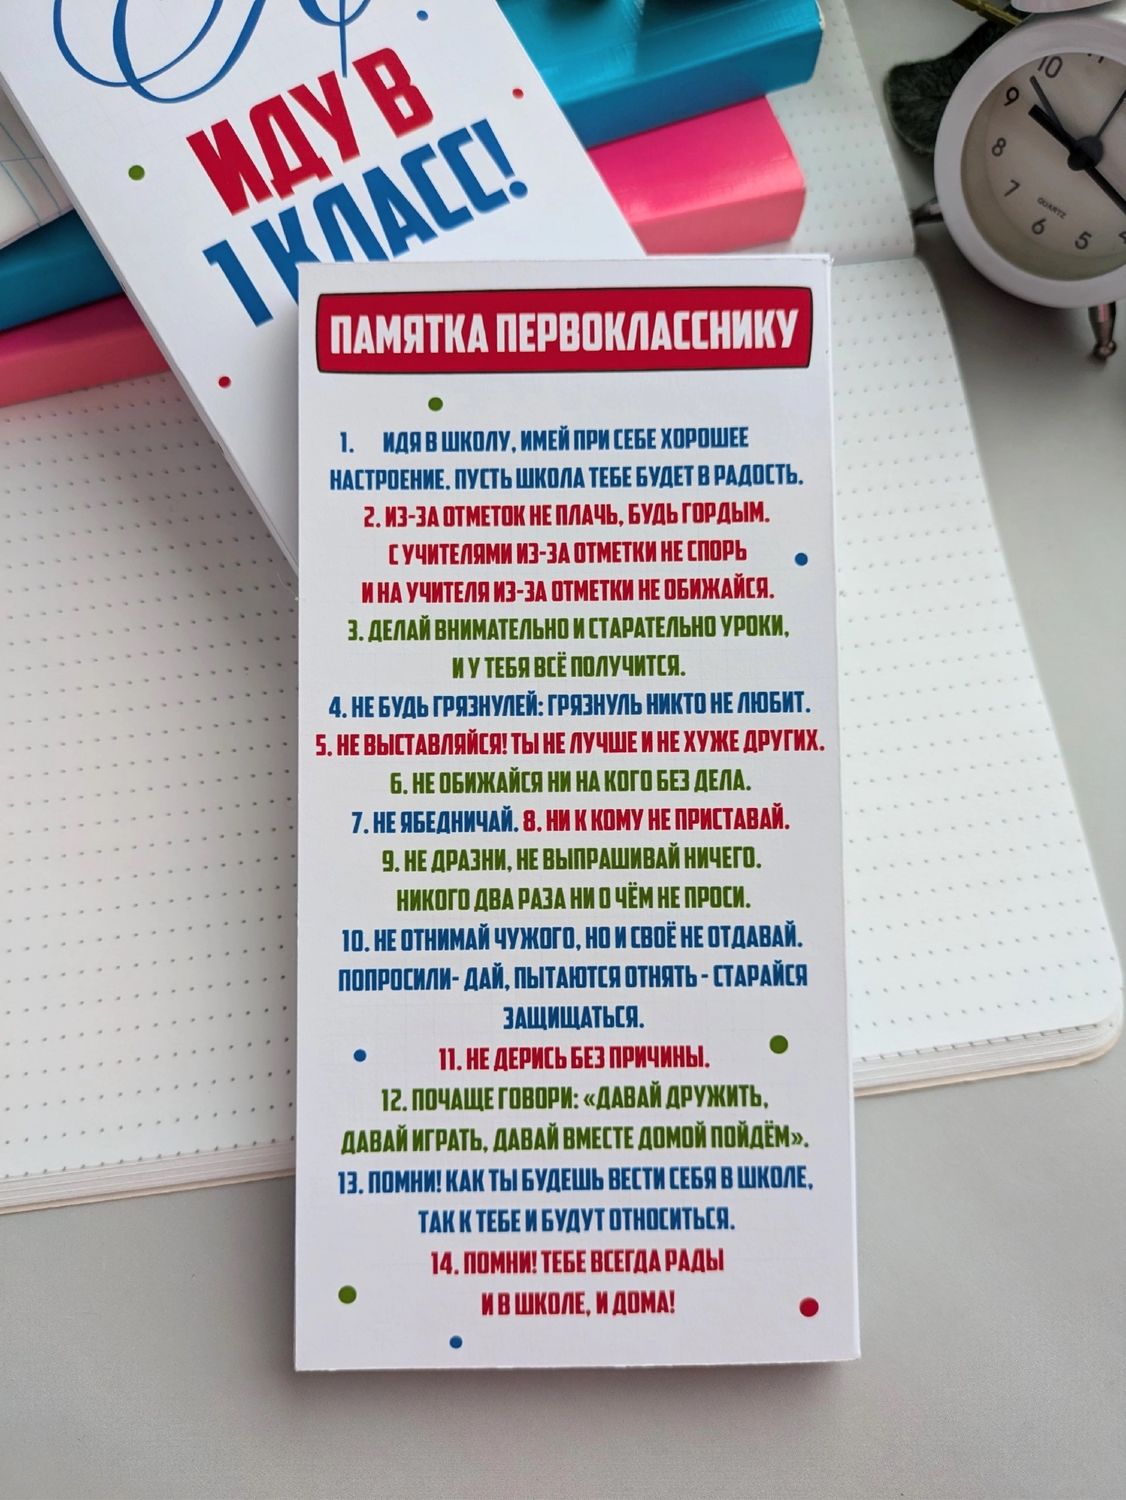 ИДУ В
1 КЛАСС!
ПАМЯТКА ПЕРВОКЛАССНИКУ
1. ИДЯ В ШКОЛУ, ИМЕЙ ПРИ СЕБЕ ХОРОШЕЕ
НАСТРОЕНИЕ. ПУСТЬ ШКОЛА ТЕБЕ БУДЕТ В РАДОСТЬ.
2. ИЗ-ЗА ОТМЕТОК НЕ ПЛАЧЬ, БУДЬ ГОРДЫМ.
С УЧИТЕЛЯМИ ИЗ-ЗА ОТМЕТКИ НЕ СПОРЬ
И НА УЧИТЕЛЯ ИЗ-ЗА ОТМЕТКИ НЕ ОБИЖАЙСЯ.
3. ДЕЛАЙ ВНИМАТЕЛЬНО И СТАРАТЕЛЬНО УРОКИ,
И У ТЕБЯ ВСЁ ПОЛУЧИТСЯ.
4. НЕ БУДЬ ГРЯЗНУЛЕЙ: ГРЯЗНУЛЬ НИКТО НЕ ЛЮБИТ.
5. НЕ ВЫСТАВЛЯЙСЯ! ТЫ НЕ ЛУЧШЕ И НЕ ХУЖЕ ДРУГИХ.
6. НЕ ОБИЖАЙСЯ НИ НА КОГО БЕЗ ДЕЛА.
7. НЕ ЯБЕДНИЧАЙ. 8. НИ К КОМУ НЕ ПРИСТАВАЙ.
9. НЕ ДРАЗНИ, НЕ ВЫПРАШИВАЙ НИЧЕГО.
НИКОГО ДВА РАЗА НИ О ЧЁМ НЕ ПРОСИ.
10. НЕ ОТНИМАЙ ЧУЖОГО, НО И СВОЁ НЕ ОТДАВАЙ.
ПОПРОСИЛИ- ДАЙ, ПЫТАЮТСЯ ОТНЯТЬ - СТАРАЙСЯ
ЗАЩИЩАТЬСЯ.
11. НЕ ДЕРИСЬ БЕЗ ПРИЧИНЫ.
12. ПОЧАЩЕ ГОВОРИ: «ДАВАЙ ДРУЖИТЬ,
ДАВАЙ ИГРАТЬ, ДАВАЙ ВМЕСТЕ ДОМОЙ ПОЙДЁМ».
13. ПОМНИ! КАК ТЫ БУДЕШЬ ВЕСТИ СЕБЯ В ШКОЛЕ,
ТАК К ТЕБЕ И БУДУТ ОТНОСИТЬСЯ.
14. ПОМНИ! ТЕБЕ ВСЕГДА РАДЫ
И В ШКОЛЕ, И ДОМА!
10
9
8
7
6
5
4
QUARTZ